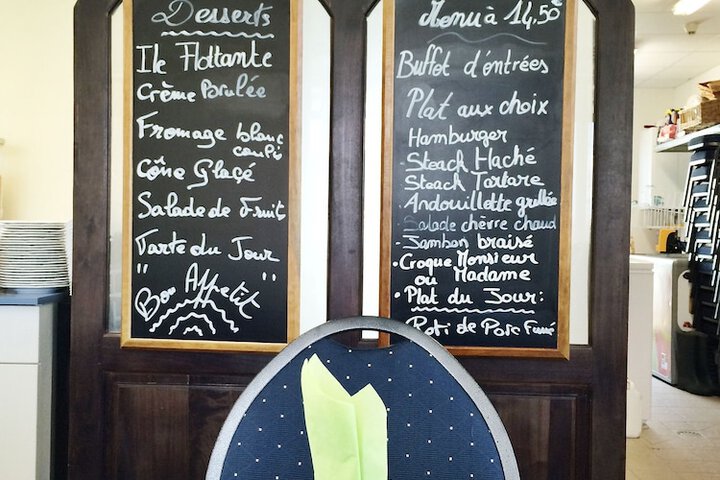 Desserts
Ile Flottante
Crème Brulée
Fromage blanc
coulis
Cône Glaçé
Salade de Fruit
Tarte du Jour
" Bon Appetit "
Menu à 14,50€
Buffet d'entrées
Plat aux choix
Hamburger
Steack Haché
Steack Tartare
Andouillette grillée
Salade chèvre chaud
Jambon braisé
Croque Monsieur
ou Madame
Plat du Jour:
Roti de Porc Fumé